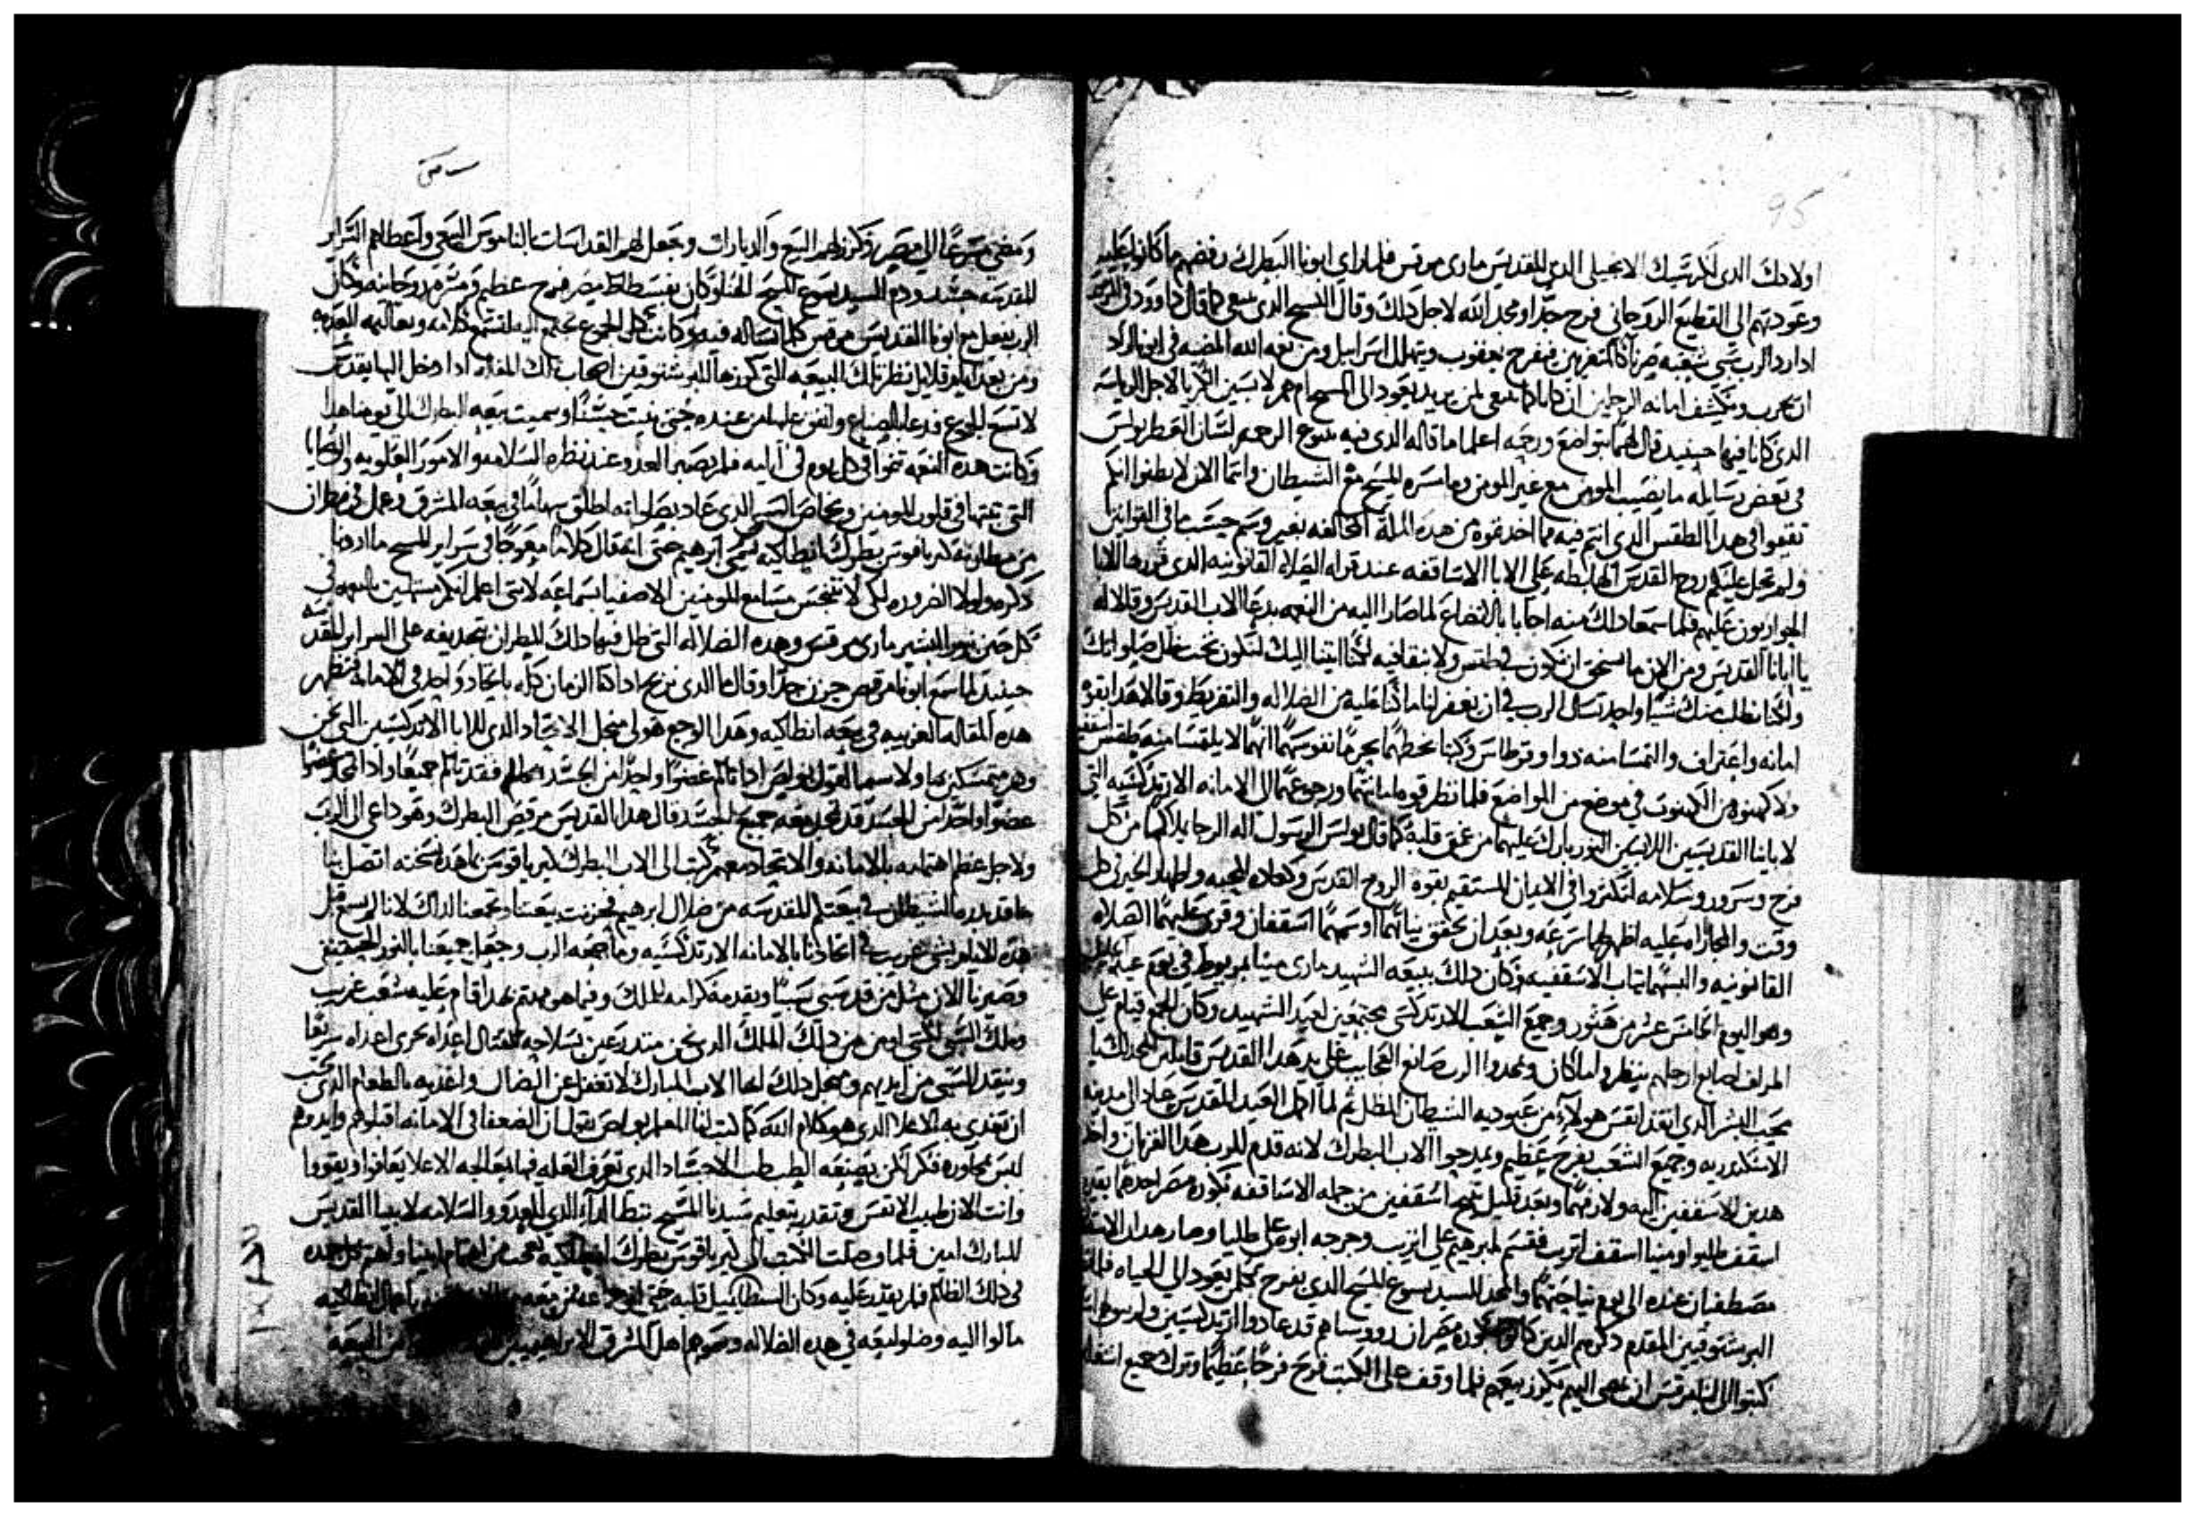 95
اولادك الدى لكرسيك الانجيلى الدى للقديس مارى مرقس فلما راى ابونا البطرك رفضهم ما كانوا عليه
وعودتهم الى القطيع الروحانى فرح جدا ومجد الله لاجل دلك وقال المسيح الدى كما قال داوود فى
ادا رد الرب سبى شعبه صرنا كالمتعزيين فيفرح يعقوب ويتهلل اسراييل ومن نعمه الله فى ابونا اراد
ان يجرب ويكشف امانه الرجلين ان كانا كما ينبغى لمن يريد يعود الى المسيح ام هم لابسين الريا لاجل الرياسه
الدى كانا فيها حينيد قال لهما بتواضع ورحمه اعلما ما قاله الدى فيه ينبوع الرحمه لسان العطر بولس
فى بعض رسايله ما نصيب المومن مع غير المومن وما مسره المسيح مع الشيطان وانتما الان لا تظنوا انكم
تقفوا فى هدا الطقس الدى انتم فيه مما اخدتموه من هده المله المخالفه بغير وسم حسب ما فى القوانين
ولم تحل عليكم روح القدس الهابطه على الابا الاساقفه عند قراه الصلاه القانونيه الدى قررها الابا
الحواريون عليهم فلما سمعا دلك منه اجابا باتضاع لما صارا اليه من النعمه بدعا الاب القديس وقالا له
يا ابانا القديس ومن الان ما نستحق ان نكون فى طقس ولا نبقا فيه لكنا اتينا اليك لنكون تحت ظل صلواتك
ولكنا نطلب منك شيا واحد تسال الرب فى ان يغفر لنا ما كنا عليه من الضلاله والتفريط وقالا هدا بقوه
امانه واعتراف والتمسا منه دوا وقرطاس وكتبا بخطهما يحرما نفوسهما انهما لا يلتمسا منه طقس اسقفيه
ولا كهنوه من الكهنوت فى موضع من المواضع فلما نظر قوه امانتهما ورجوعهما الى الامانه الارتدكسيه التى
لابائنا القديسين اللابسين النور بارك عليهما من عمق قلبه كما قال بولس الرسول اله الرجا يملاكما من كل
فرح وسرور وسلامه لتكثروا فى الايمان المستقيم بقوه الروح القدس وكماله المحبه ولطهار الخير فى كل
وقت والمجازاه عليه اظهر لهما سرعه وبعد ان تحقق نياتهما اوسمهما اسقفان وقرى عليهما الصلاه
القانونيه والبسهما تياب الاسقفيه وكان دلك ببيعه الشهيد مارى مينا بمريوط فى يوم عيده
وهو اليوم الخامس عشر من هتور وجميع الشعب الارتدكسى مجتمعين لعيد الشهيد وكان الجمع قيام على
اطراف اصابع ارجلهم ينظروا ما كان ومجدوا الرب صانع العجايب على يد هدا القديس قايلين المجد لك يا
محب البشر الدى انقد انفس هولاء من عبوديه الشيطان المظل ثم لما اكمل العيد المقدس عاد الى مدينه
الاسكندريه وجميع الشعب بفرح عظيم ويمدحوا الاب البطرك لانه قدم للرب هدا القربان واخد
هدين الاسقفين اليه ولازمهما وبعد قليل تنيح اسقفين من جمله الاساقفه بكوره مصر احدهما
اسقف طلبوا ومنيا اسقف اتريب فقسم ابرهيم على اتريب وجرجه ابو على طلبا وصار هدان
مصطفيان عنده الى يوم نياحتهما والمجد للسيد يسوع المسيح الدى يفرح بكل من يعود الى الحياه فلما
البرسنوفيين المقدم دكرهم الدين كانوا بكوره مصر ان روساهم قد عادوا ارتدكسيين
كتبوا الى انبا مرقس ان يمضى اليهم يكرز بيعهم فلما وقف على الكتب فرح فرحا عظيما وترك جميع

ومضى مسرعا الى مصر وكرز لهم البيع والديارات وجعل لهم القداسات بالناموس البيعى واعطاهم السراير
المقدسه جسد ودم السيد يسوع المسيح الهنا وكان بفسطاط مصر فرح عظيم ومسره روحانيه وكان
الرب يفعل مع ابونا القديس مرقس كلما يساله فيه وكانت كل الجموع تجتمع اليه لتسمع كلامه وتعاليمه
ومن بعد ايام قلايل نظر تلك البيعه التى كرزها للبرسنوفيين اصحاب تلك المقاله ادا دخل اليها يقدس
لا تسع الجموع فدعا الصناع وانفق عليها من عنده حتى بنيت حسنا وسميت بيعه البطرك الى يومنا هدا
وكانت هده النعمه تنموا فى كل يوم فى ايامه فلم يصبر العدو عند نظره السلامه والامور العلويه
التى تمتها فى قلوب المومنين وبخاصه الدى عاد بصلواته اطلق سهاما فى بيعه المشرق وعمل فى مطران
من مطارنه كيرياقوس بطرك انطاكيه يسمى ابرهيم حتى انه قال كلاما معوجا فى سراير المسيح ما اردنا
دكره لولا الضروره لكى لا تتنجس مسامع المومنين الاصفيا بسماعه لانى اعلم انكم
كل حين البشير مارى مرقس وهده الضلاله التى ظل فيها دلك المطران تجديفه على السراير المقدسه
حينيد لما سمع ابونا مرقس حزن جدا وقال ما الدى نربح ادا كنا الزمان كله باتحاد واحد فى الامانه فتظهر
هده المقاله الغريبه فى بيعه انطاكيه وهدا الوجع هو لى من اجل الاتحاد الدى للابا الارتدكسيين التى نحن
وهم متمسكين بها ولا سيما القول لبولس ادا تالم عضوا واحدا من الجسد فقد تالم جميعا وادا مجد عضوا
عضوا واحدا من الجسد فقد تمجد معه جميع الجسد قال هدا القديس مرقس البطرك وهو داعى الى الرب
ولاجل عظم اهتمامه بالامانه والاتحاد معهم كتب الى الاب البطرك كيرياقوس بما هده نسخته اتصل بنا
ما قد بدره الشيطان فى بيعتكم المقدسه من ضلال ابرهيم فحزنت بيعتنا وتجمعنا لداك لاننا لم نسمع قبل
هده الايام بشى غريب فى اتحادنا بالامانه الارتدكسيه وما جمعه الرب وجعل جميعنا بالنور الحقيقى
وصيرنا الان مثل من قد سبى سبيا ويقدمه كرامه للملك وفيما هو مهتم بهدا قام عليه شعب غريب
وملك السبى اومن هو دلك الملك الدى نحن متدرعين بسلاحه لقتال اعداه نحرى اعداه سريعا
وينقد السبى من ايديهم ومن اجل دلك ايها الاب المبارك لا تغفل عن النضال واغديه بالطعام الدى يجب
ان تغدى به الاعلا الدى هو كلام الله كما كتب لنا المعلم بولص يقول ان الضعفا فى الامانه اقبلوهم وايدوهم
ليس بمجاوره فكر لكن بصنعه الطب طب الاجساد الدى تعرف العله فيما يعالجه الاعلا يعافوا ويقووا
وانت الان طبيب الانفس وتقدر بتعليم سيدنا المسيح تبطا الداء الدى للعدو والسلامه لابينا القديس
المبارك امين فلما وصلت الى كيرياقوس بطرك انطاكيه تعجب من اهتمام ابينا
فى دلك الظالم فلم يقدر عليه وكان الشيطان يميل قلبه حتى
مالوا اليه وضلوا معه فى هده الضلاله وسموهم اهل المشرق الابراهيميين من البيعه